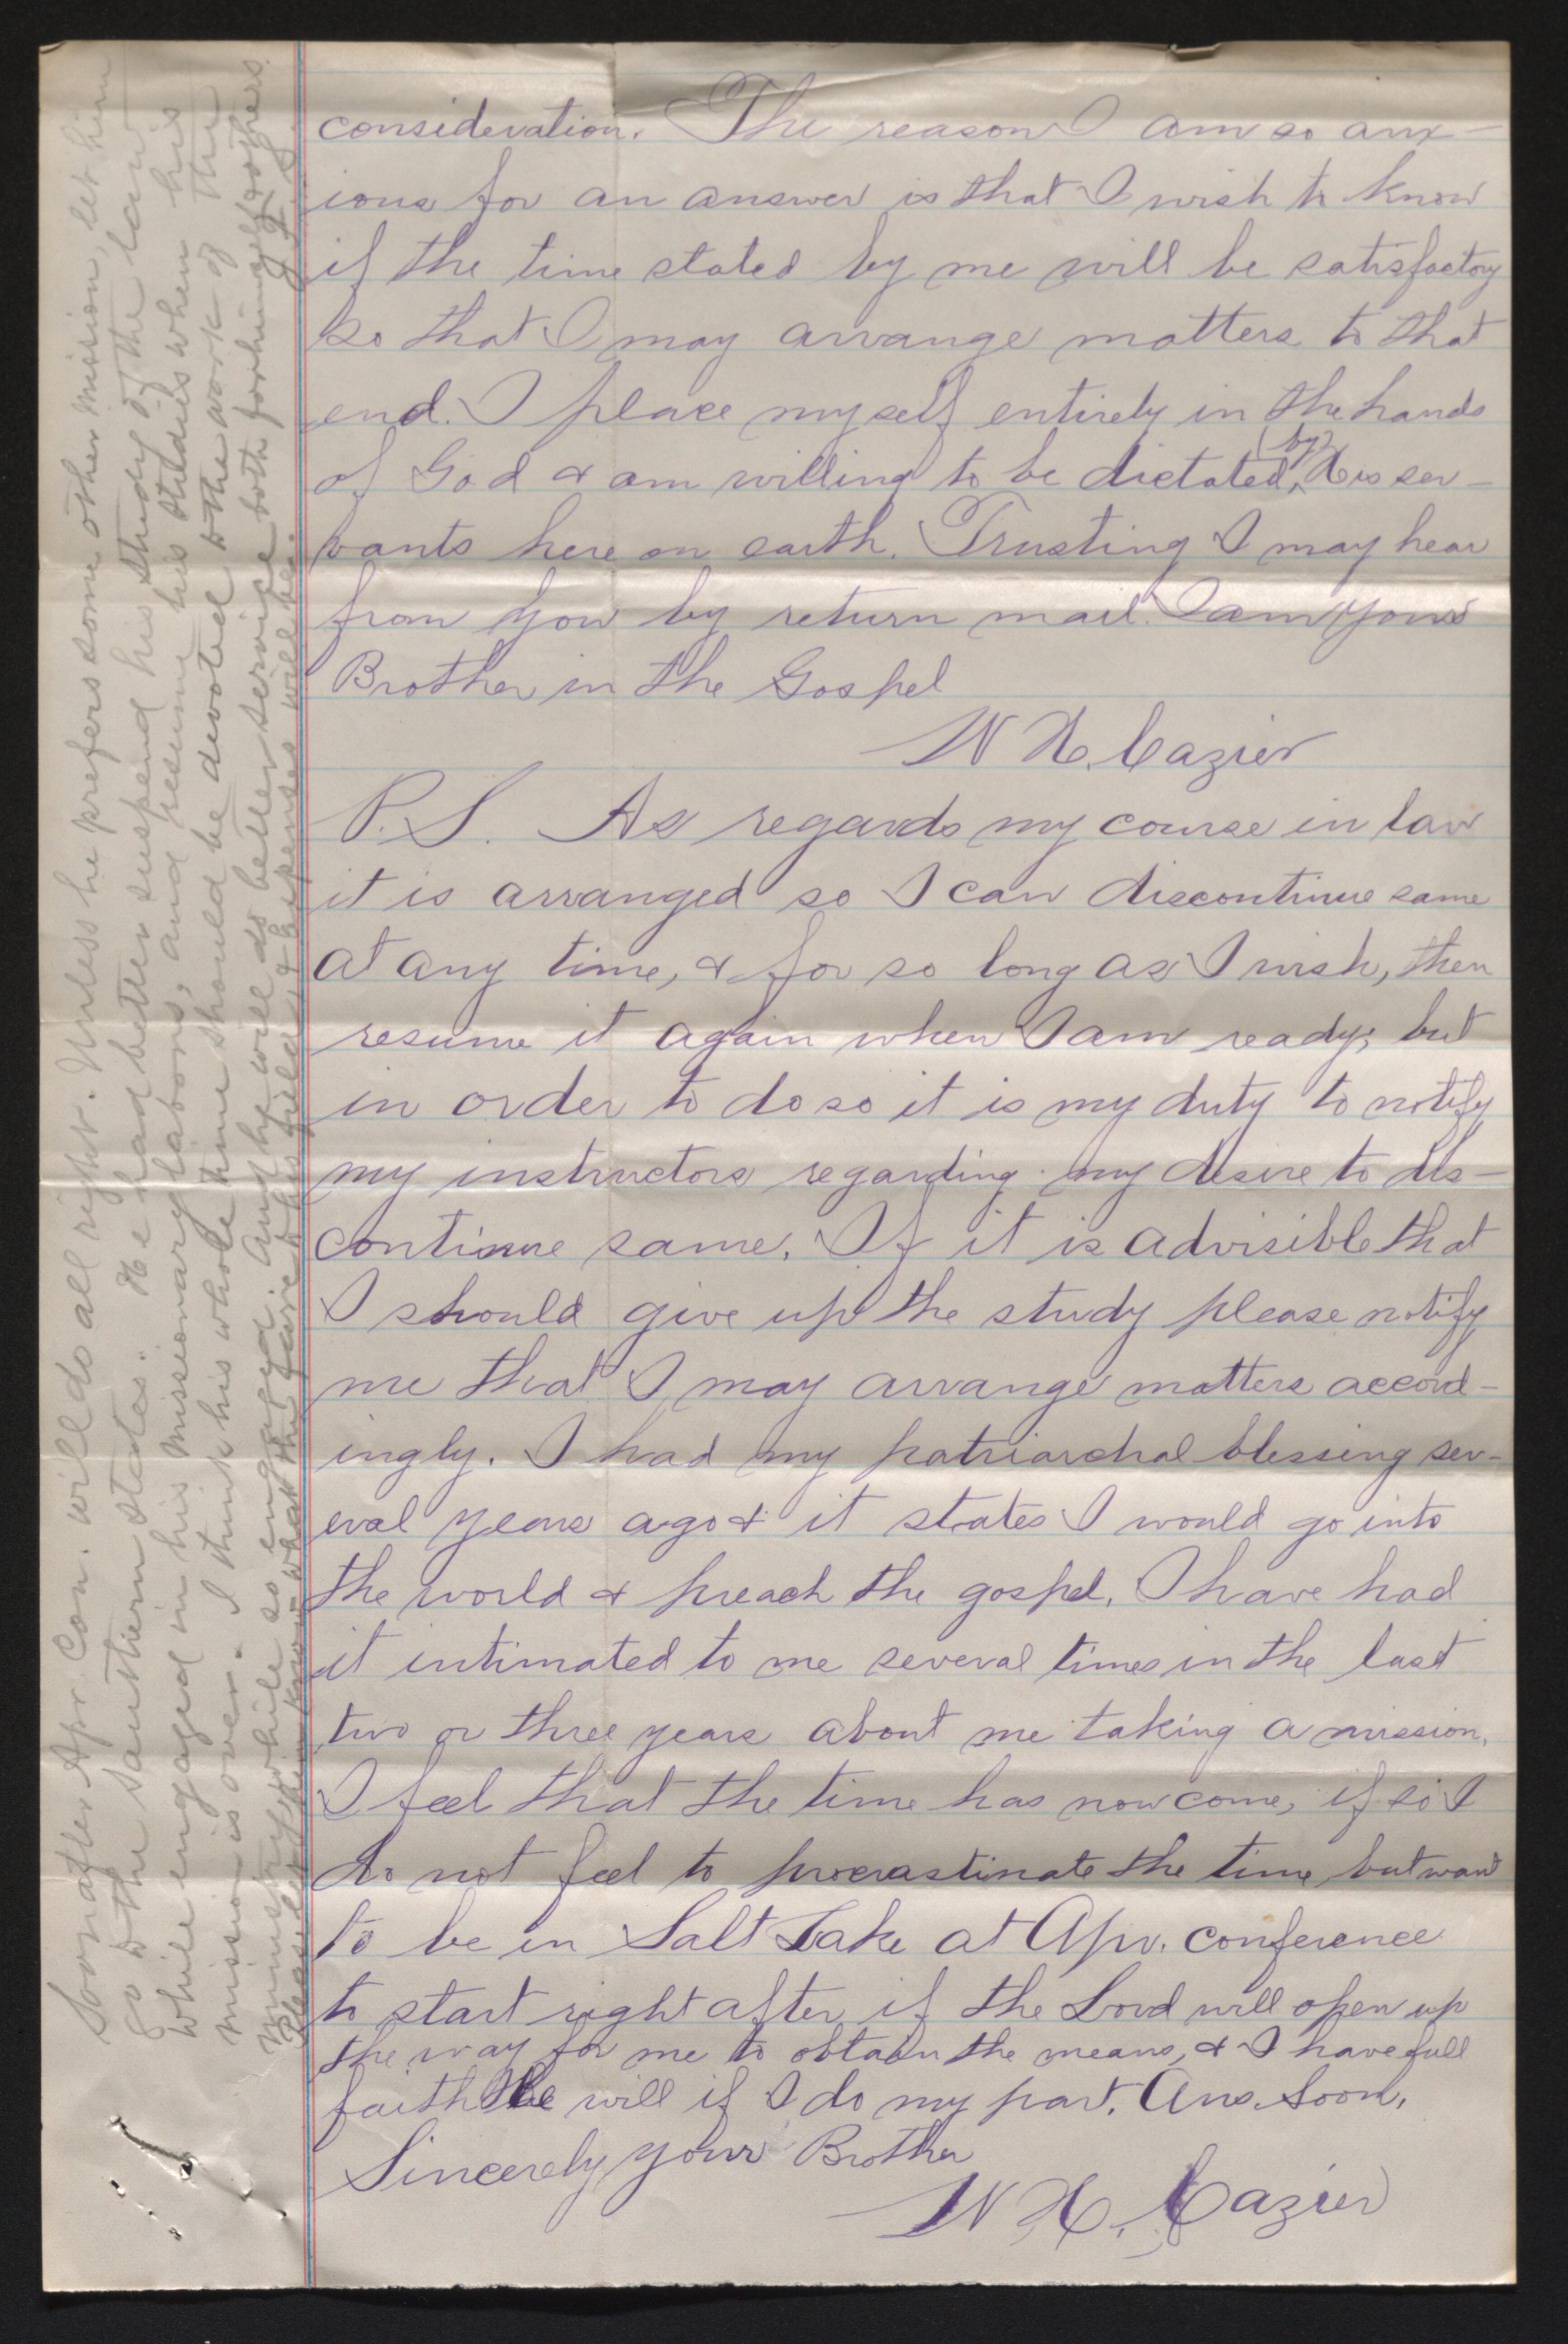 consideration. The reason I am so anx-
ious for an answer is that I wish to know
if the time stated by me will be satisfactory
so that I may arrange matters to that
end. I place myself entirely in the hands
of God & am willing to be dictated by His ser-
vants here on earth. Trusting I may hear
from you by return mail. I am your
Brother in the Gospel
W H. Cazier
P.S. As regards my course in law
it is arranged so I can discontinue same
at any time, & for so long as I wish, then
resume it again when I am ready; but
in order to do so it is my duty to notify
my instructors regarding my desire to dis-
continue same. If it is advisible that
I should give up the study please notify
me that I may arrange matters accord-
ingly. I had my patriarchal blessing sev-
eral years ago & it states I would go into
the world & preach the gospel. I have had
it intimated to me several times in the last
two or three years about me taking a mission.
I feel that the time has now come, if so I
do not feel to procrastinate the time but want
to be in Salt Lake at Apr. conference
to start right after if the Lord will open up
the way for me to obtain the means, & I have full
faith He will if I do my part. Ans. Soon.
Sincerely your Brother
W H. Cazier
Soon after Apr. Con. will do all right. Unless he prefers some other mission, let him
go to the Southern States. He had better suspend his study of the law
while engaged in his missionary labors, and resume his studies when his
mission is over. I think his whole time should be devoted to the work of the
ministry while so engaged. And he will do better service both for himself & others.
Please let him know what the fare to his field & expenses will be. J. F. S.